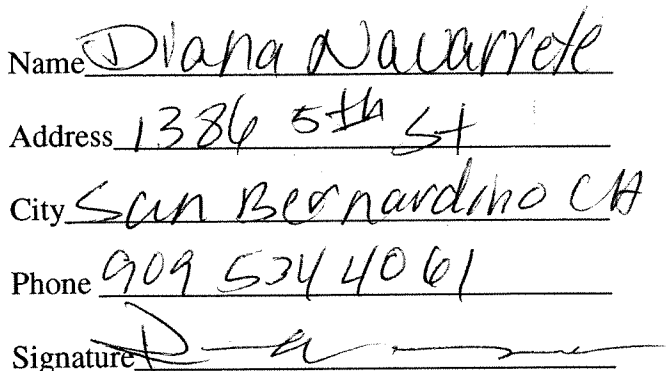 Name Diana Navarrete
Address 1386 5th St
City San Bernardino CA
Phone 909 534 4061
Signature